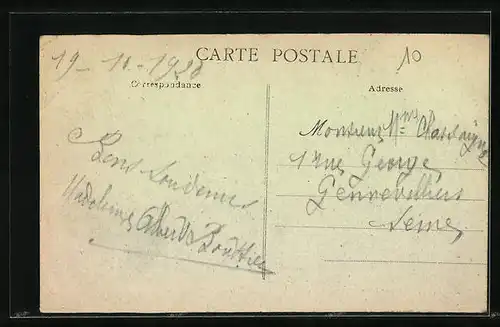 19-11-1928
CARTE POSTALE
10
Correspondance
Adresse
Bons Souvenirs
Madeleine Albert
Monsieur Mme
1 rue George
Gennevilliers
Seine